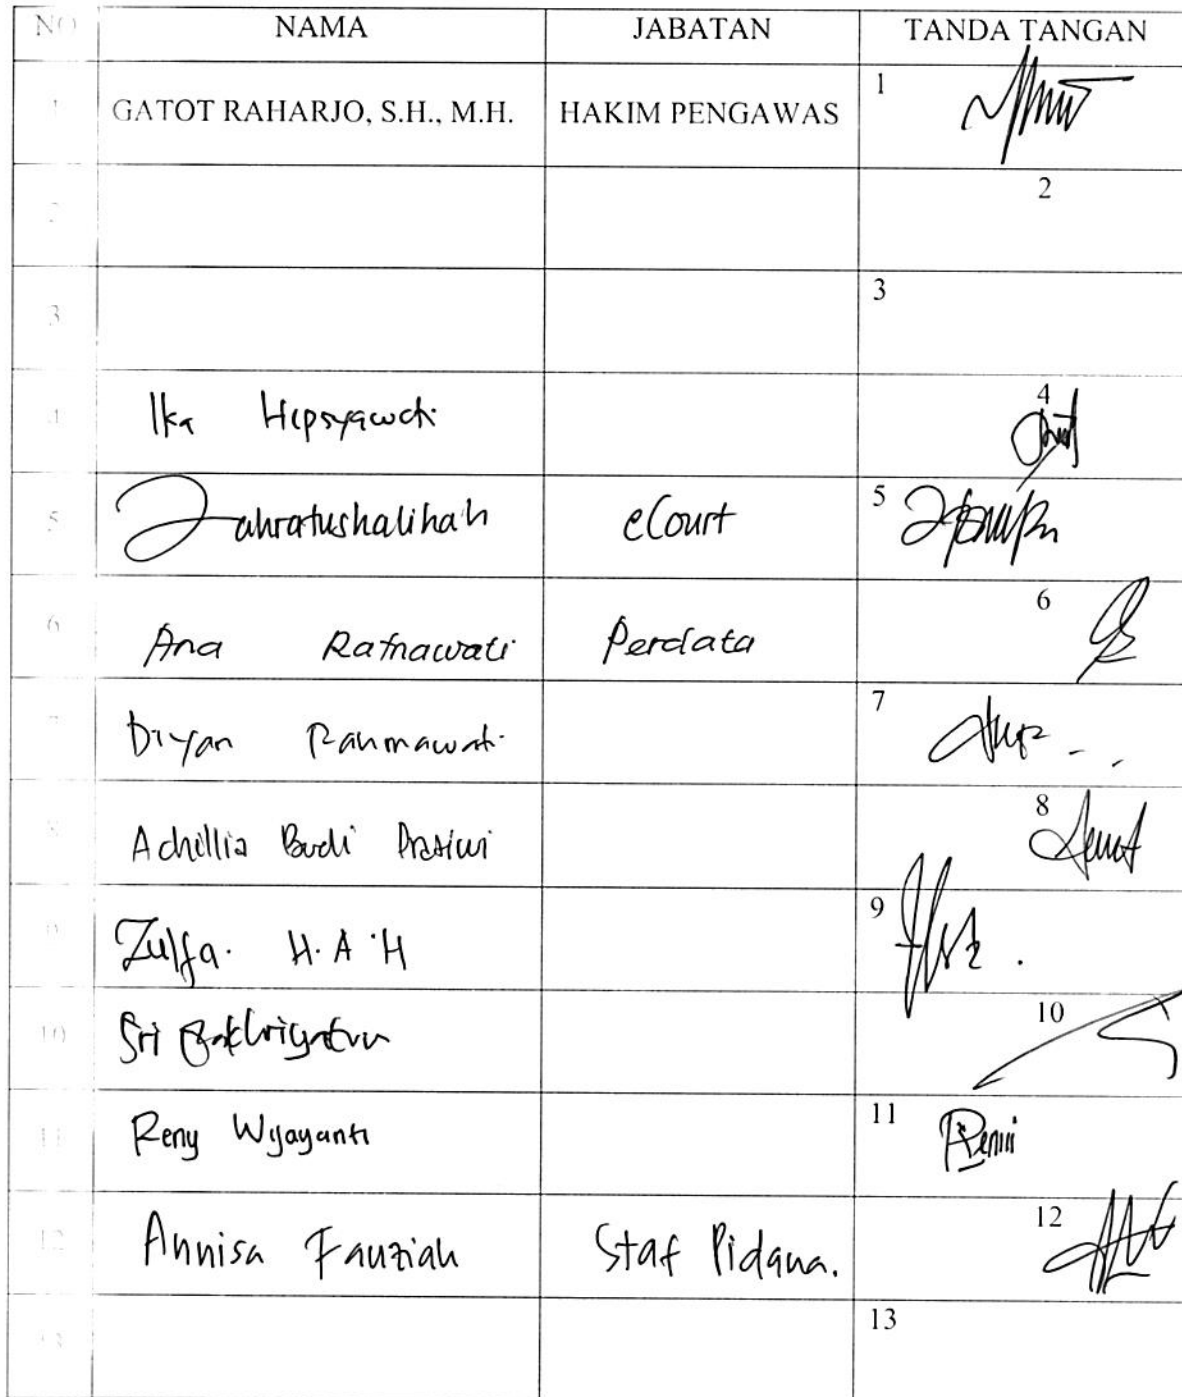 NO NAMA JABATAN TANDA TANGAN
1 GATOT RAHARJO, S.H., M.H. HAKIM PENGAWAS 1
2 2
3 3
4 Ika Hepsyawati 4
5 Zahratushalihah eCourt 5
6 Ana Ratnawati Perdata 6
7 Diyan Rahmawati 7
8 Achillia Budi Pratiwi 8
9 Zulfa. H.A.H 9
10 Sri 10
11 Reny Wijayanti 11
12 Annisa Fauziah Staf Pidana. 12
13 13